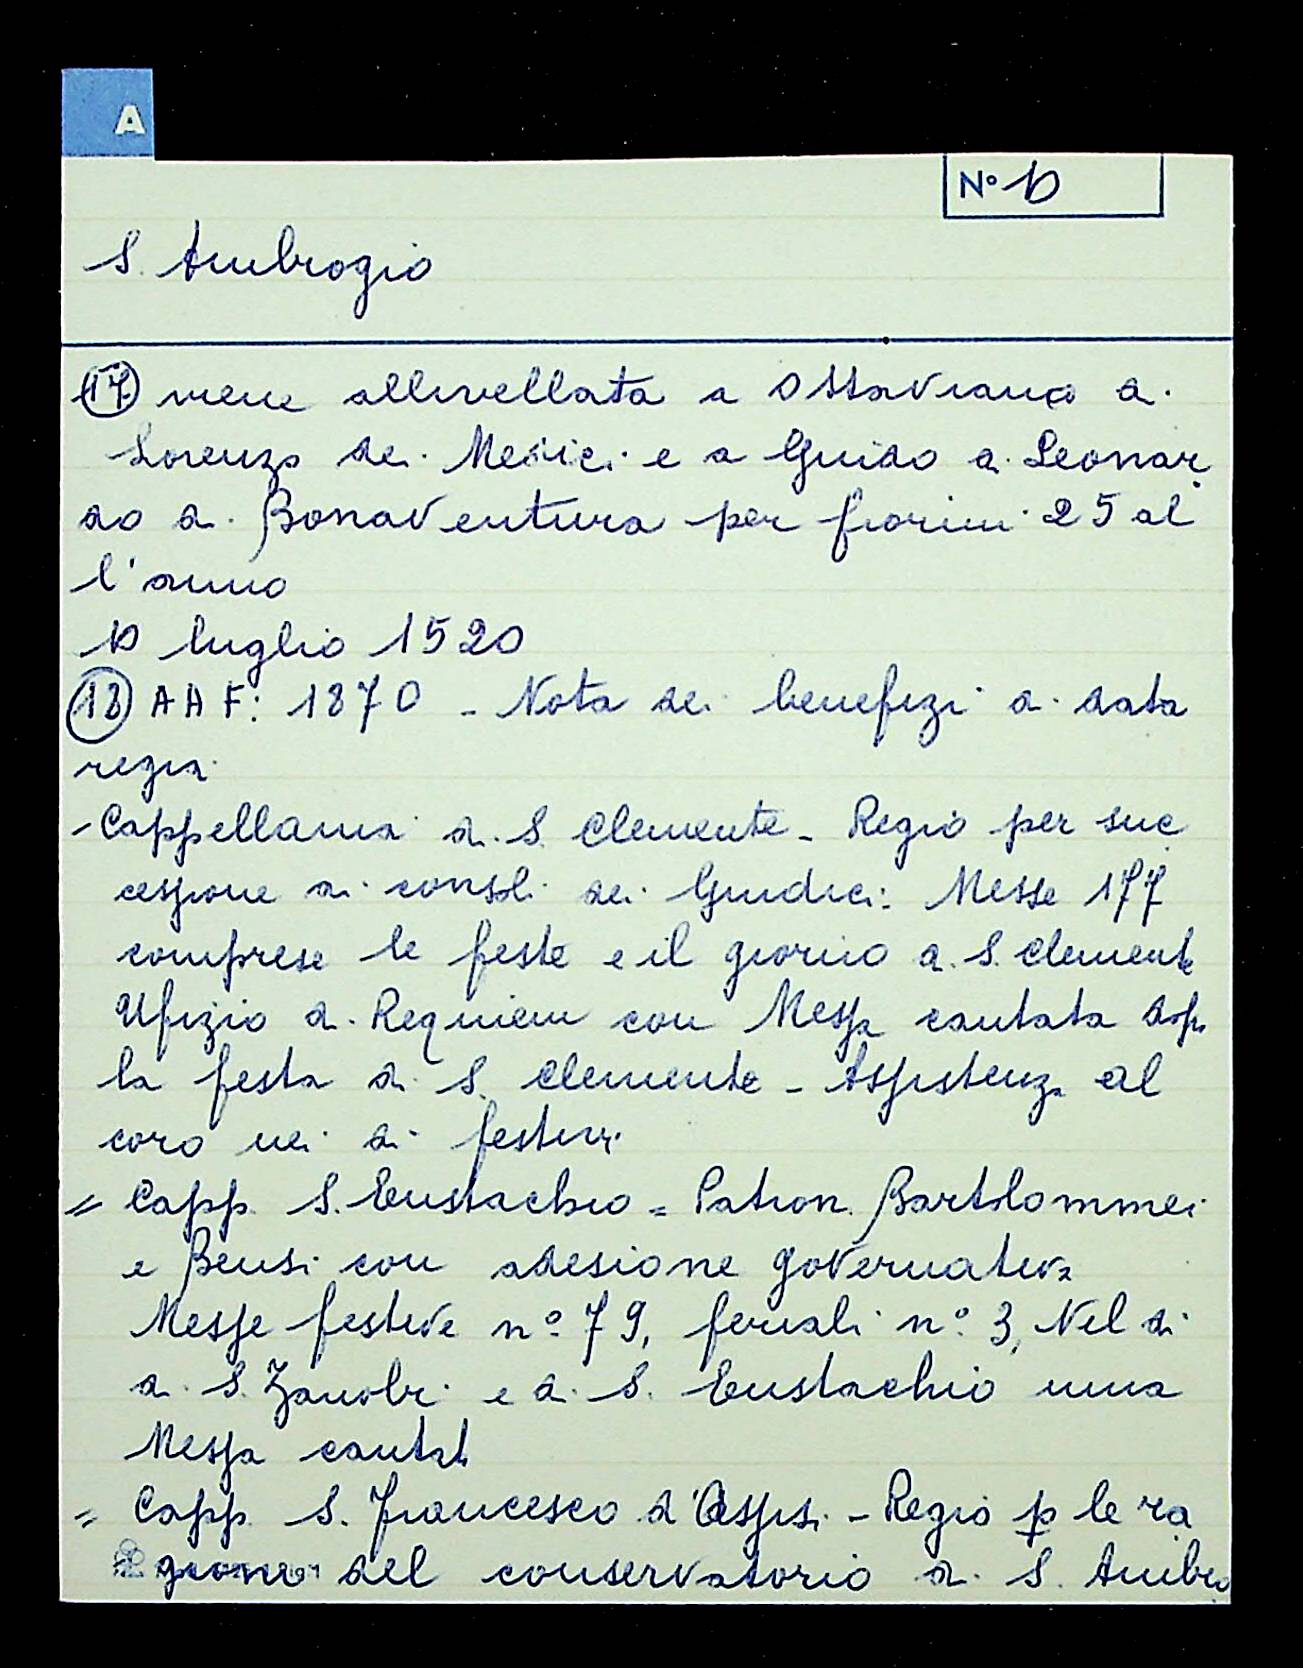 A
N° 10
S. Ambrogio
17 viene allivellata a Ottaviano di
Lorenzo dei Medici e a Guido di Leonar
do di Bonaventura per fiorini 25 al
l'anno
10 luglio 1520
18 AAF: 1870 - Nota dei benefizi di data
regia
- Cappellania di S. Clemente - Regio per suc
cessione ai consoli dei Giudici: Messe 177
comprese le feste e il giorno di S. Clemente
Ufizio di Requiem con Messa cantata dopo
la festa di S. Clemente - Assistenza al
coro nei dì festivi
= Capp. S. Eustachio = Patron. Bartolommei
e Bensi con adesione governativa
Messe festive n° 79, feriali n° 3, Nel dì
di S. Zanobi e di S. Eustachio una
Messa cantat
= Capp. S. Francesco d'Assisi - Regio p le ra
gioni del conservatorio di S. Ambro